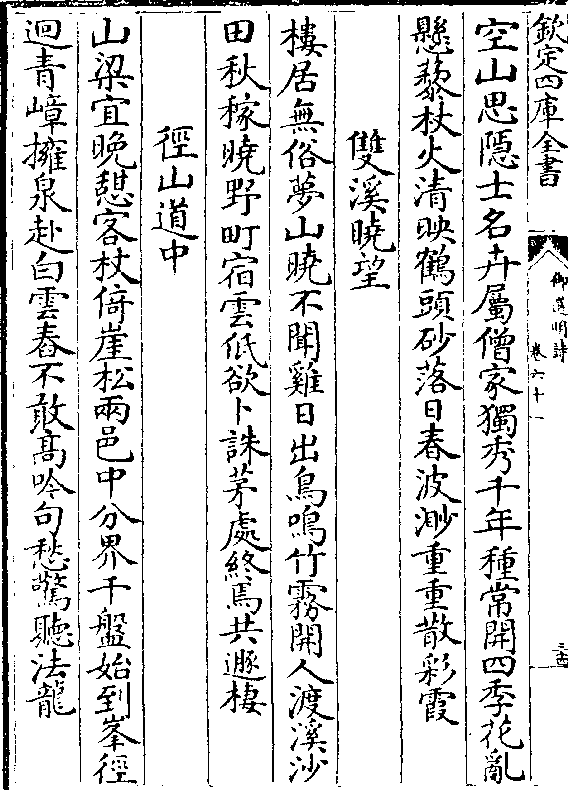 欽定四庫全書
御選明詩
卷六十一
空山思隱士名卉屬僧家獨秀千年種常開四季花亂
懸藜杖火清映鶴頭砂落日春波渺重重散彩霞
雙溪曉望
樓居無俗夢山曉不聞雞日出鳥鳴竹霧開人渡溪沙
田秋稼曉野町宿雲低欲卜誅茅處終焉共遯棲
徑山道中
山梁宜晚憩客杖倚崖松兩邑中分界千盤始到峯徑
迴青嶂擁泉赴白雲舂不敢高吟句愁驚聽法龍